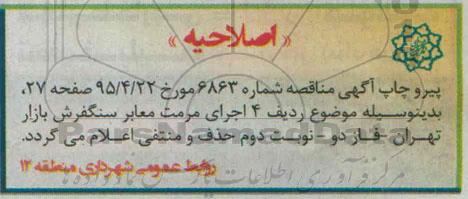 « اصلاحیه »
پیرو چاپ آگهی مناقصه شماره ۶۸۶۳ مورخ ۹۵/۴/۲۲ صفحه ۲۷،
بدینوسیله موضوع ردیف ۴ اجرای مرمت معابر سنگفرش بازار
تهران -فاز دو- نوبت دوم حذف و منتفی اعلام می گردد.
روابط عمومی شهرداری منطقه ۱۲